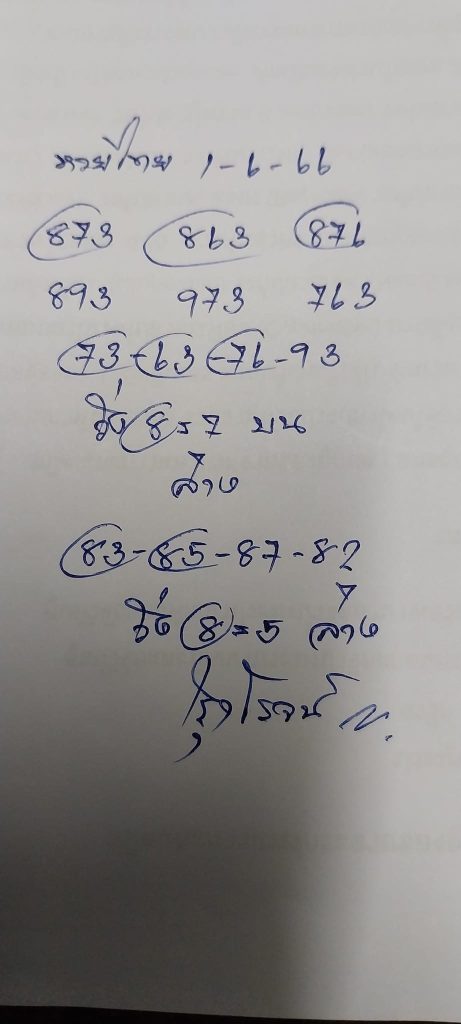 หวยไทย 1-6-66
873 863 876
893 973 763
73-63-76-93
วิ่ง 8=7 บน
ล่าง
83-85-87-82
วิ่ง 8=5 ล่าง
รุ่งโรจน์ N.